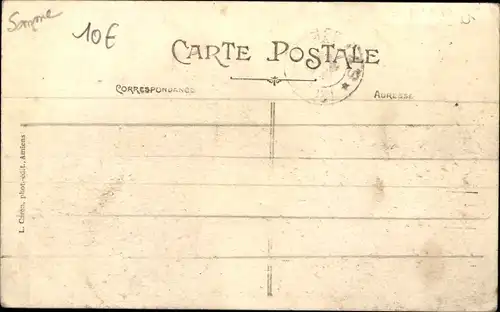 Somme
10€
CARTE POSTALE
CORRESPONDANCE
ADRESSE
L. Caron, phot.-édit., Amiens